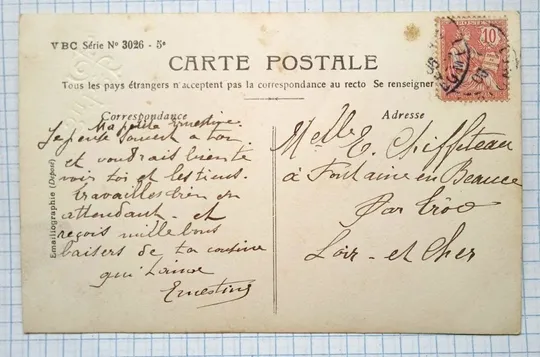 VBC Série Nº 3026 - 5e
CARTE POSTALE
Tous les pays étrangers n'acceptent pas la correspondance au recto Se renseigner
Correspondance
Ma petite Ernestine
Je pense souvent a toi
et voudrais bien te
voir toi et les tiens.
travailles bien en
attendant. et
reçois mille bons
baisers de ta cousine
qui t'aime
Ernestine
Emaillographie (Déposé)
Adresse
Melle E. Chiffleteau
à Fontaine en Beauce
Par
Loir - et Cher
10